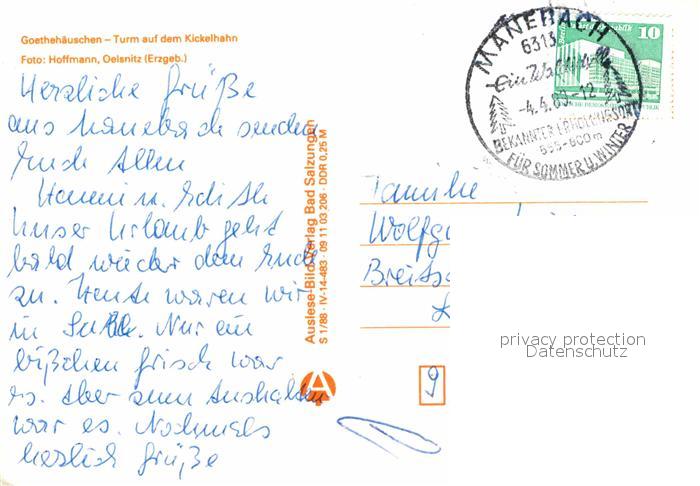 Goethehäuschen – Turm auf dem Kickelhahn
Foto: Hoffmann, Oelsnitz (Erzgeb.)
Herzliche Grüße
aus Manebach senden
Euch Allen
Hanni u. Edith
Unser Urlaub geht
bald wieder dem Ende
zu. Heute waren wir
in Suhl. Nur ein
bißchen frisch war
es. Aber zum Aushalten
war es. Nochmals
herzlich Grüße
Auslese-Bild-Verlag Bad Salzungen
S 1/88 · IV-14-483 · 09 11 03 206 · DDR 0,25 M
MANEBACH
6313
-4.4.89.-12
BEKANNTER ERHOLUNGSORT
FÜR SOMMER U. WINTER
10
Familie
Wolfg
Breits
9
privacy protection
Datenschutz